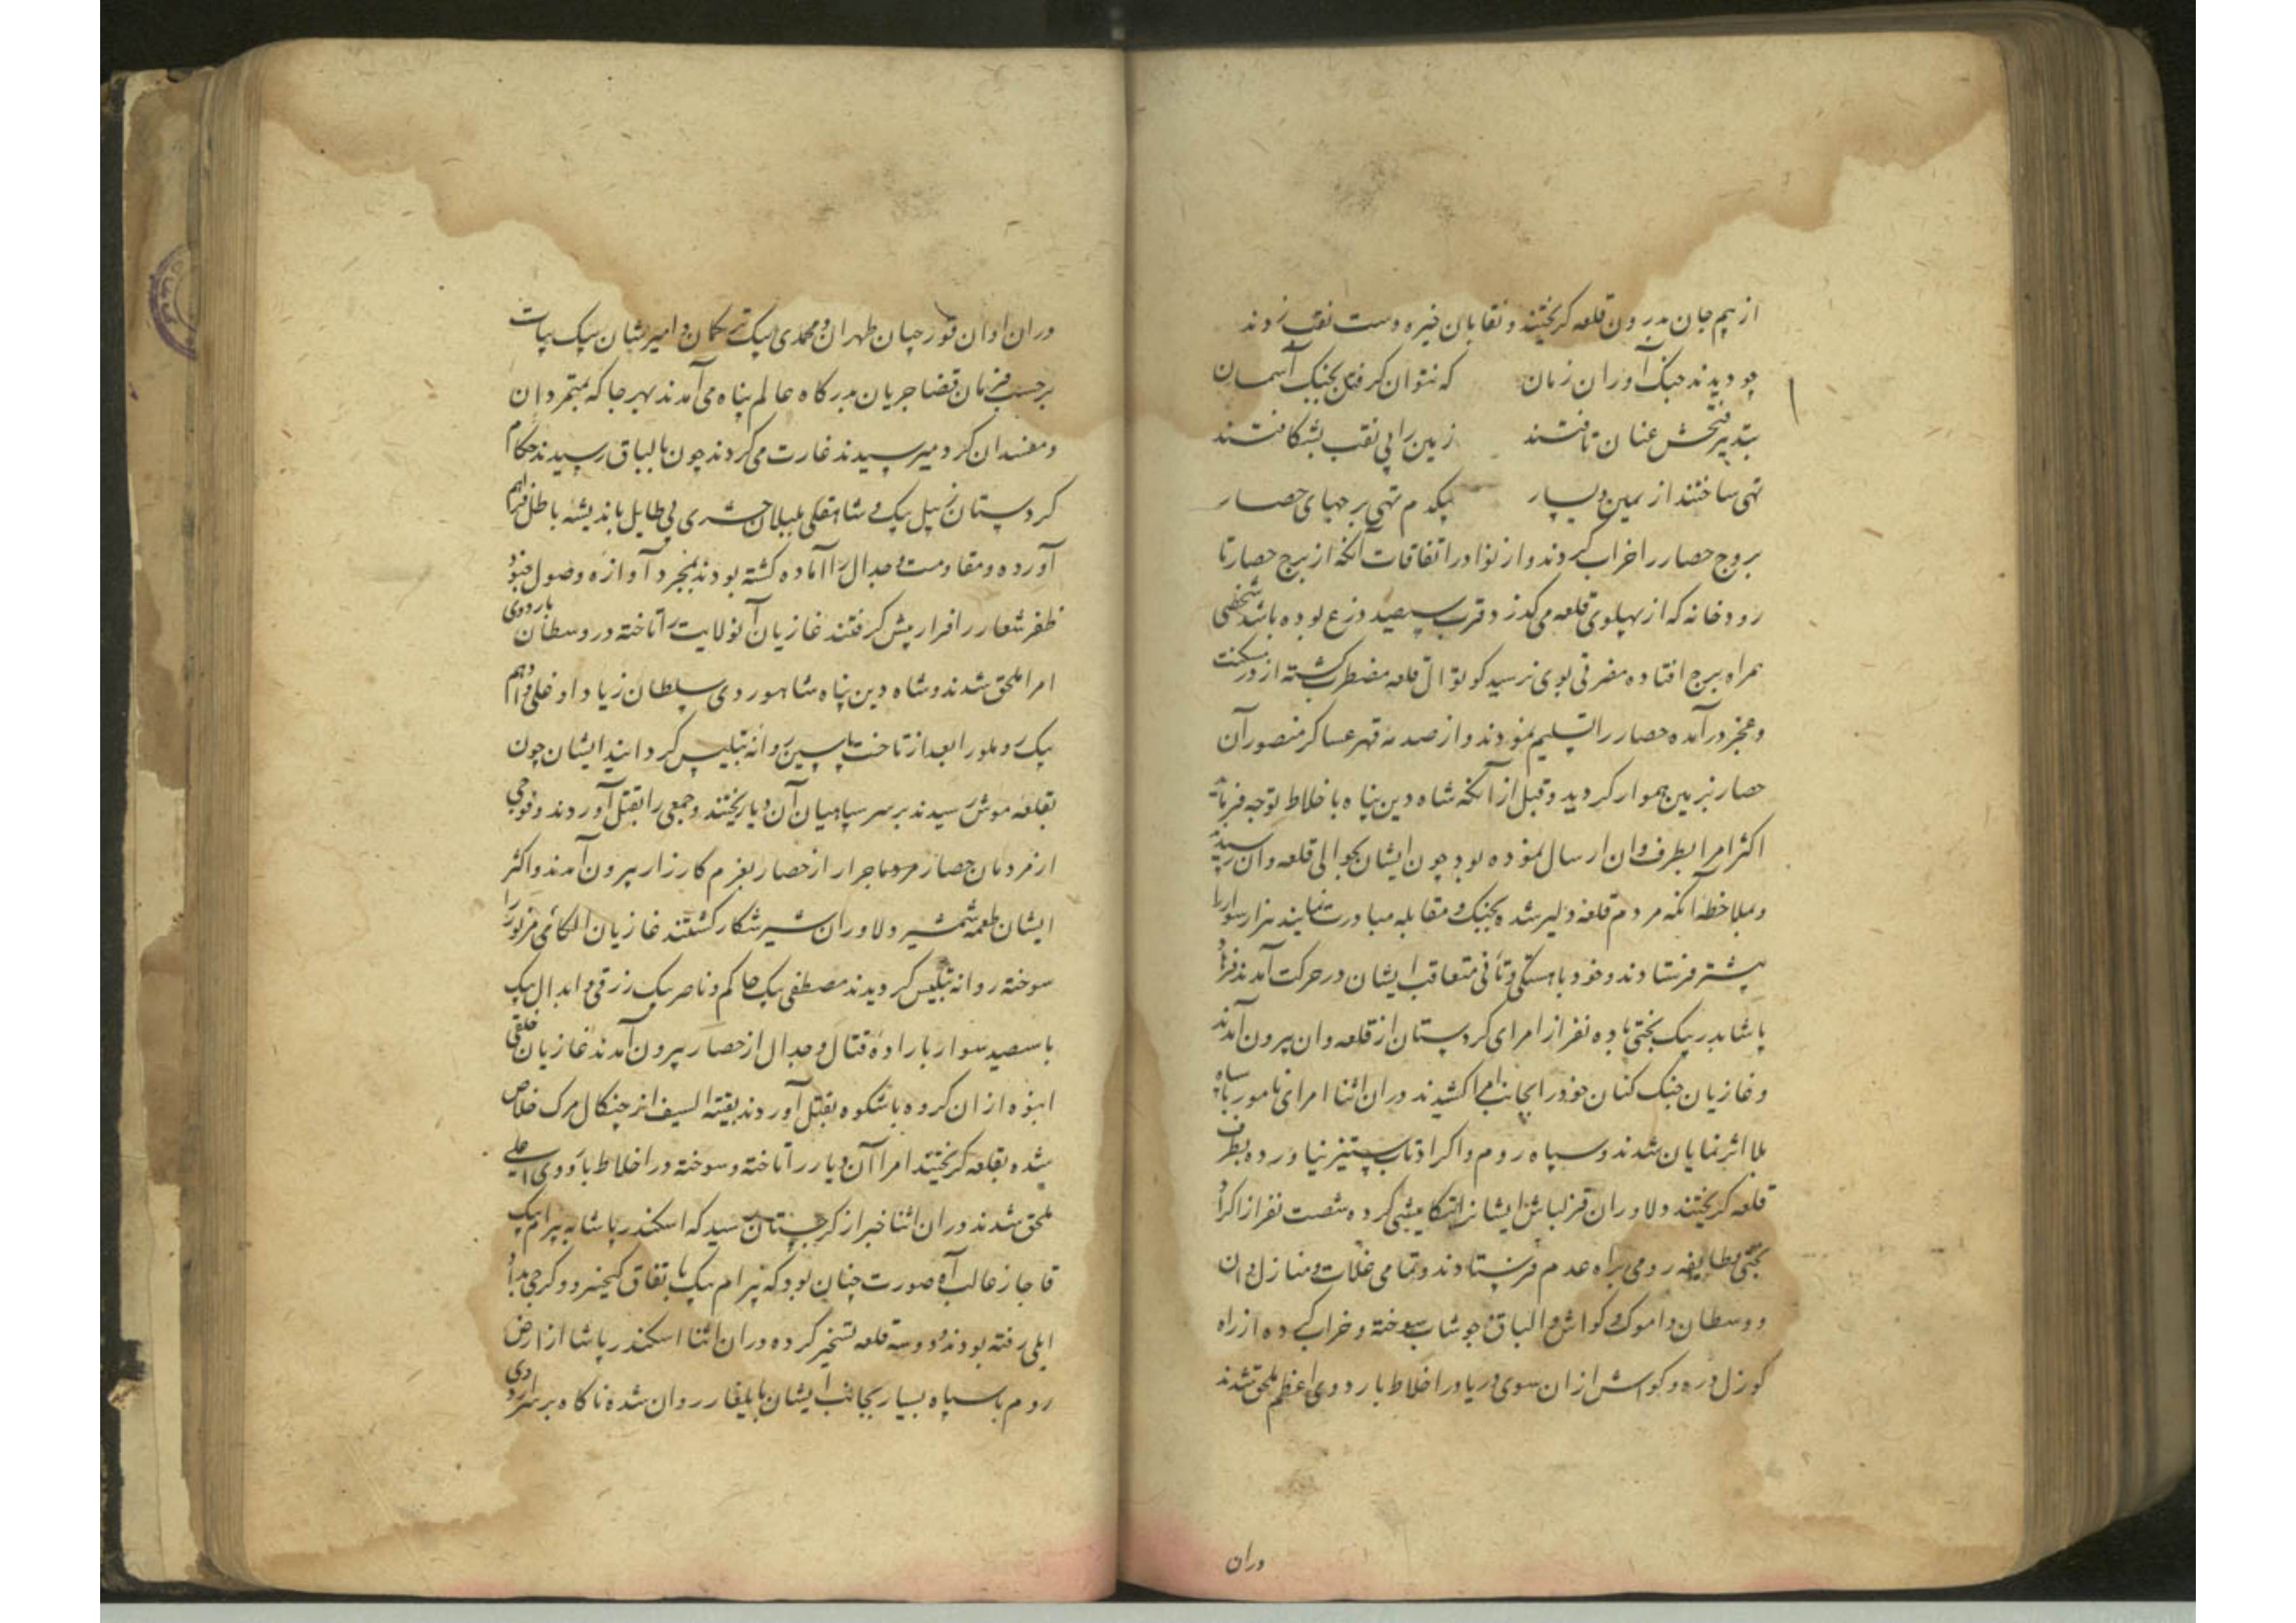 از بیم جان بدرون قلعه کریختند و نقابان خیره دست نقب زدند
چو دیدند جنک آوران زمان که نتوان کرفتن بجنک آسمان
بتدبیر فتحش عنان تافتند زمین را پی نقب بشکافتند
تهی ساختند از یمین و یسار بیکدم تهی برجهای حصار
بروج حصار را خراب کردند و از نوادر اتفاقات آنکه از برج حصار تا
رودخانه که از پهلوی قلعه می‌کذرد قرب سیصد ذرع بوده باشد شخصی
همراه برج افتاده مضرتی بوی نرسید کوتوال قلعه مضطرب کشته از در مسکنت
و عجز درآمده حصار را تسلیم نمودند و از صدمه قهر عساکر منصور آن
حصار بزمین هموار کردید و قبل از آنکه شاه دین پناه باخلاط توجه فرماید
اکثر امرا بطرف وان ارسال نموده بود چون ایشان بحوالی قلعه وان رسیدند
و بملاحظه آنکه مردم قلعه دلیر شده بجنک و مقابله مبادرت نمایند هزار سوار را
پیشتر فرستادند و خود باهستکی و تأنی متعاقب ایشان در حرکت آمدند فرهاد
پاشا بدر بیک بختی با ده نفر از امرای کردستان از قلعه وان بیرون آمدند
و غازیان جنک کنان خود را بجانب امرا کشیدند دران اثنا امرای نامور با سپاه
بلا اثر نمایان شدند و سپاه روم و اکراد تاب ستیز نیاورده بطرف
قلعه کریختند دلاوران قزلباش ایشانرا تکامیشی کرده شصت نفر از اکراد
بختی بطایفه رومی براه عدم فرستادند و تمامی غلات و منازل وان
و وسطان و اموک و کواش و الباق و جوشاب سوخته و خراب کرده از راه
کوزل دره و کواش از ان سوی دریا در اخلاط باردوی اعظم ملحق شدند
دران
دران اوان قورچیان طهران و محمدی بیک ترکمان و امیر شان بیک بیات
برحسب فرمان قضا جریان بدرکاه عالم پناه می‌آمدند بهر جا که بمتمردان
و مفسدان کرد میرسیدند غارت می‌کردند چون بالباق رسیدند حکام
کردستان زینل بیک و شاهقلی بلیلان حشری بی طایل باندیشه باطل فراهم
آورده و مقاومت و جدال را آماده کشته بودند بمجرد آوازه وصول جنود
ظفر شعار راه فرار پیش کرفتند غازیان آنولایت را تاخته در وسطان باردوی
امرا ملحق شدند و شاه دین پناه شاهوردی سلطان زیاد اوغلی و ادهم
بیک روملو را بعد از تاخت پاسین روانه تبلیس کردانید ایشان چون
بقلعه موش رسیدند بر سر سپاهیان آن دیار ریختند و جمعی را بقتل آوردند و فوجی
از مردمان حصار مردم جرار از حصار بعزم کارزار بیرون آمدند و اکثر
ایشان طعمه شمشیر دلاوران شیر شکار کشتند غازیان الکائی مزبور را
سوخته روانه تبلیس کردیدند مصطفی بیک حاکم و ناصر بیک زرقی و ابدال بیک
با سیصد سوار باراده قتال و جدال از حصار بیرون آمدند غازیان خلقی
انبوه از ان کروه باشکوه بقتل آوردند بقیه السیف از چنکال مرک خلاص
شده بقلعه کریختند امرا آن دیار را تاخته و سوخته در اخلاط باردوی اعلی
ملحق شدند دران اثنا خبر از کرجستان رسید که اسکندر پاشا به بیرام بیک
قاجار غالب آمد صورت چنان بود که بیرام بیک باتفاق کیخسرو کرجی بدا
ایلی رفته بودند و دو سه قلعه تسخیر کرده دران اثنا اسکندر پاشا از ارض
روم با سپاه بسیار بجانب ایشان بایلغار روان شده ناکاه بر سر اردوی